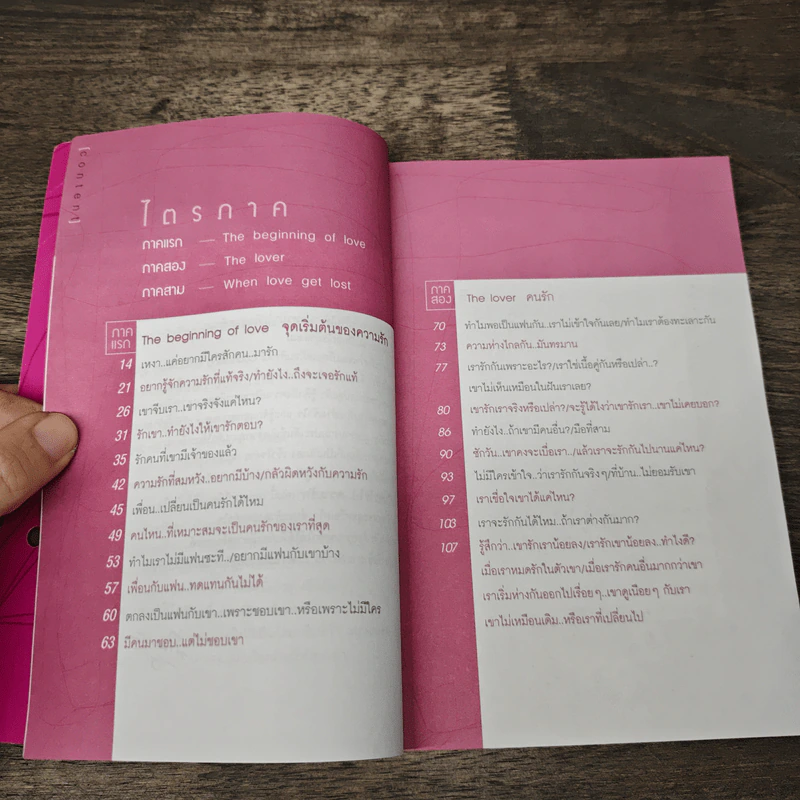 [content]
ไตรภาค
ภาคแรก — The beginning of love
ภาคสอง — The lover
ภาคสาม — When love get lost
ภาคแรก The beginning of love จุดเริ่มต้นของความรัก
14 เหงา..แค่อยากมีใครสักคน..มารัก
21 อยากรู้จักความรักที่แท้จริง/ทำยังไง..ถึงจะเจอรักแท้
26 เขาจีบเรา..เขาจริงจังแค่ไหน?
31 รักเขา..ทำยังไงให้เขารักตอบ?
35 รักคนที่เขามีเจ้าของแล้ว
42 ความรักที่สมหวัง..อยากมีบ้าง/กลัวผิดหวังกับความรัก
45 เพื่อน..เปลี่ยนเป็นคนรักได้ไหม
49 คนไหน..ที่เหมาะสมจะเป็นคนรักของเราที่สุด
53 ทำไมเราไม่มีแฟนซะที../อยากมีแฟนกับเขาบ้าง
57 เพื่อนกับแฟน..ทดแทนกันไม่ได้
60 ตกลงเป็นแฟนกับเขา..เพราะชอบเขา..หรือเพราะไม่มีใคร
63 มีคนมาชอบ..แต่ไม่ชอบเขา
ภาคสอง The lover คนรัก
70 ทำไมพอเป็นแฟนกัน..เราไม่เข้าใจกันเลย/ทำไมเราต้องทะเลาะกัน
73 ความห่างไกลกัน..มันทรมาน
77 เรารักกันเพราะอะไร?/เราใช่เนื้อคู่กันหรือเปล่า..?
เขาไม่เห็นเหมือนในฝันเราเลย?
80 เขารักเราจริงหรือเปล่า?/จะรู้ได้ไงว่าเขารักเรา..เขาไม่เคยบอก?
86 ทำยังไง..ถ้าเขามีคนอื่น?/มือที่สาม
90 ซักวัน..เขาคงจะเบื่อเรา../แล้วเราจะรักกันไปนานแค่ไหน?
93 ไม่มีใครเข้าใจ..ว่าเรารักกันจริงๆ/ที่บ้าน..ไม่ยอมรับเขา
97 เราเชื่อใจเขาได้แค่ไหน?
103 เราจะรักกันได้ไหม..ถ้าเราต่างกันมาก?
107 รู้สึกว่า..เขารักเราน้อยลง/เรารักเขาน้อยลง..ทำไงดี?
เมื่อเราหมดรักในตัวเขา/เมื่อเรารักคนอื่นมากกว่าเขา
เราเริ่มห่างกันออกไปเรื่อยๆ..เขาดูเนือยๆ กับเรา
เขาไม่เหมือนเดิม..หรือเราที่เปลี่ยนไป